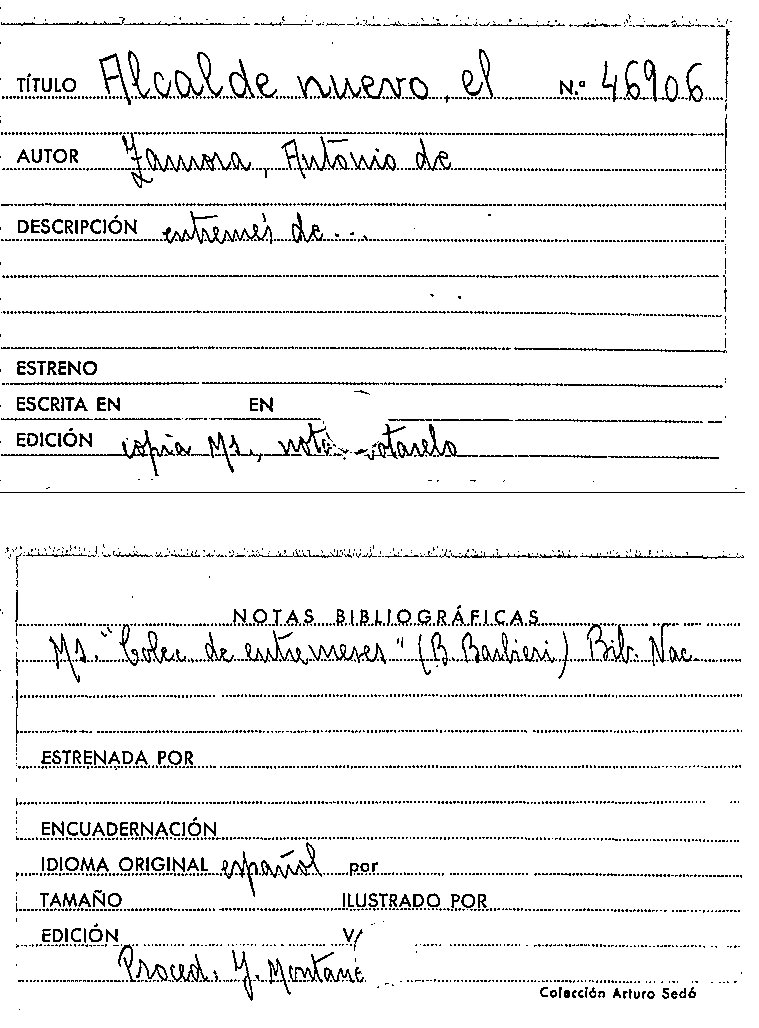 TÍTULO Alcalde nuevo, el N.º 46906
AUTOR Zamora, Antonio de
DESCRIPCIÓN entremés de ...
ESTRENO
ESCRITA EN EN
EDICIÓN copia Ms., nota Cotarelo
NOTAS BIBLIOGRÁFICAS
Ms. "Colec. de entremeses" (B. Barbieri) Bib. Nac.
ESTRENADA POR
ENCUADERNACIÓN
IDIOMA ORIGINAL español por
TAMAÑO ILUSTRADO POR
EDICIÓN V/
Proced. Y. Montané
Colección Arturo Sedó